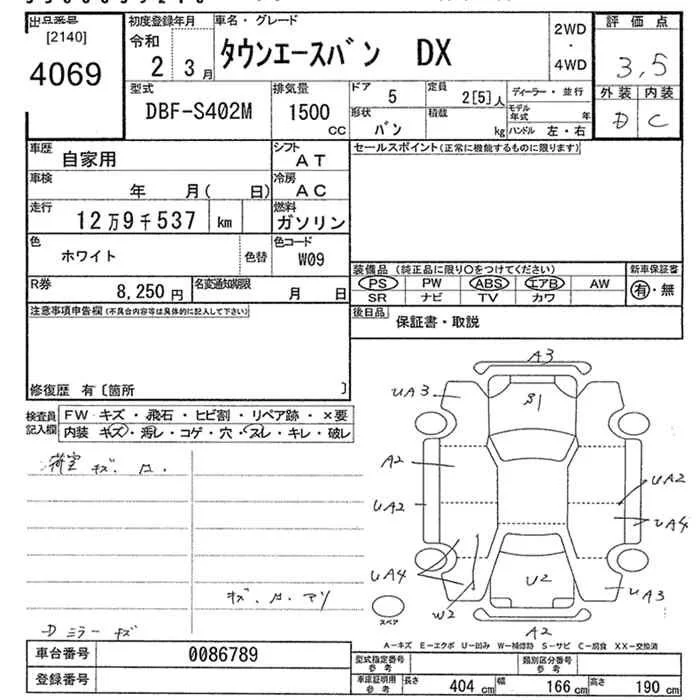 出品番号
[2140]
4069
初度登録年月
令和
2 3月
車名・グレード
タウンエースバン DX
2WD
・
4WD
評価点
3.5
外装 内装
D C
型式
DBF-S402M
排気量
1500
cc
ドア
5
定員
2[5]人
形状
バン
積載
kg
ディーラー・並行
モデル年式 年
ハンドル 左・右
車歴
自家用
シフト
AT
車検
年 月( 日)
冷房
AC
走行
12万9千537 km
燃料
ガソリン
色
ホワイト
色替
色コード
W09
R券
8,250円
名変通知期限
月 日
セールスポイント(正常に機能するものに限ります)
装備品 (純正品に限り○をつけてください)
PS PW ABS エアB AW
SR ナビ TV カワ
新車保証書
有・無
後日品
保証書・取説
注意事項申告欄(不具合内容等は具体的に記入して下さい)
修復歴 有〔箇所 〕
検査員記入欄
FW キズ・飛石・ヒビ割・リペア跡・×要
内装 キズ・汚レ・コゲ・穴・スレ・キレ・破レ
荷室 キズ.
Dミラーキズ
A3
UA3
A2
UA2
UA2
UA4
UA4
W2
U2
UA3
A2
スペア
A-キズ E-エクボ U-凹み W-補修跡 S-サビ C-腐食 XX-交換済
車台番号
0086789
登録番号
型式指定番号
参考
類別区分番号
参考
車庫証明用
参考
長さ 404cm 幅 166cm 高さ 190cm